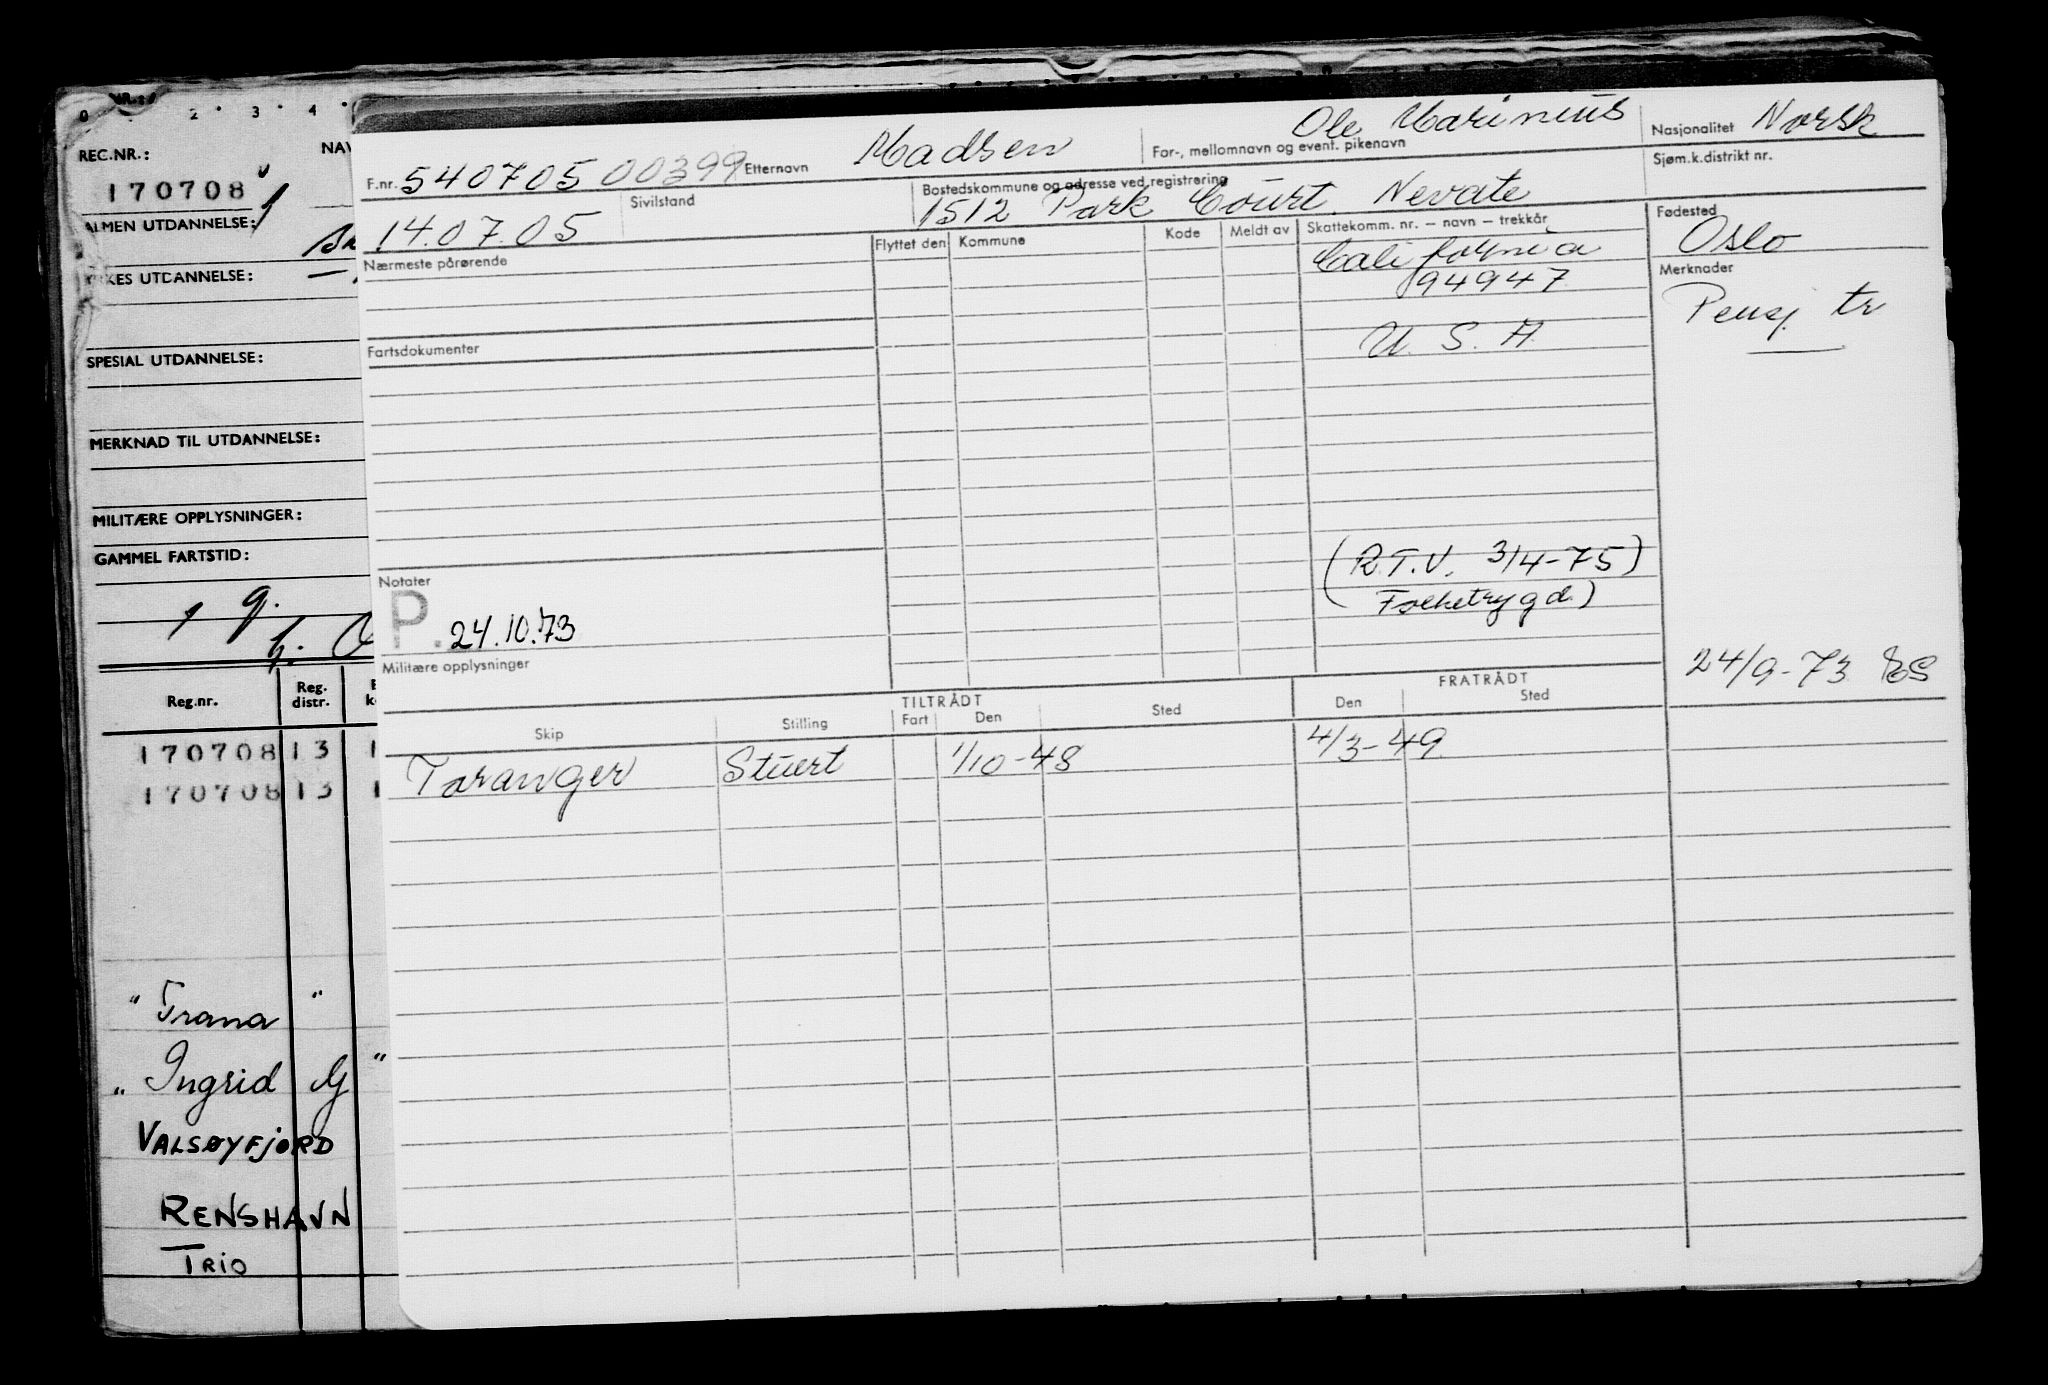 0 2 3 4
REC.NR.:
NAV
170708
ALMEN UTDANNELSE:
UTDANNELSE:
SPESIAL UTDANNELSE:
MERKNAD TIL UTDANNELSE:
MILITÆRE OPPLYSNINGER:
GAMMEL FARTSTID:
Reg.nr. Reg. distr.
170708 13 1
170708 13 1
" Trana "
" Ingrid "
VALSØYFJORD
RENSHAVN
TRIO
F.nr. 540705 00399 Etternavn Madsen For-, mellomnavn og event. pikenavn Ole Marinius Nasjonalitet Norsk
14.07.05 Sivilstand Bostedskommune og adresse ved registrering 1512 Park Court Nevate Sjøm.k.distrikt nr.
Nærmeste pårørende Flyttet den Kommune Kode Meldt av Skattekomm. nr. – navn – trekkår Fødested
California Oslo
94947 Merknader
U. S. A Pensj. tr
Fartsdokumenter
(R.T.V. 3/4-75)
Folketrygd)
Notater
P. 24.10.73
Militære opplysninger
24/9-73
TILTRÅDT FRATRÅDT
Skip Stilling Fart Den Sted Den Sted
Taranger Stuert 1/10-48 4/3-49